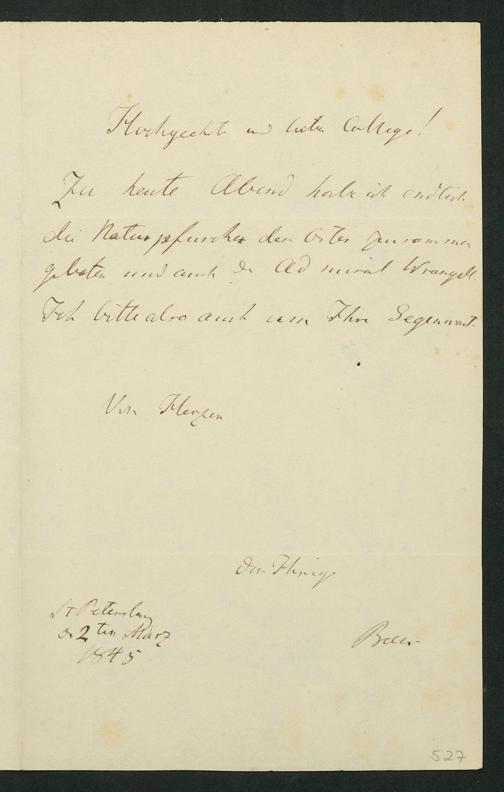 Hochgeehrter und lieber College!
Zu heute Abend habe ich endlich
die Naturpfuscher des Ostes zusammen
gebeten und auch den Admiral Wrangell.
Ich bitte also auch um Ihre Gegenwart.
Von Herzen
der Ihrige
St Petersburg
d 2ten März
1845
Baer
527